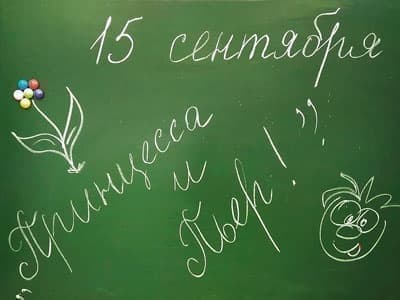 15 сентября
"Принцесса
и
Пьер!"